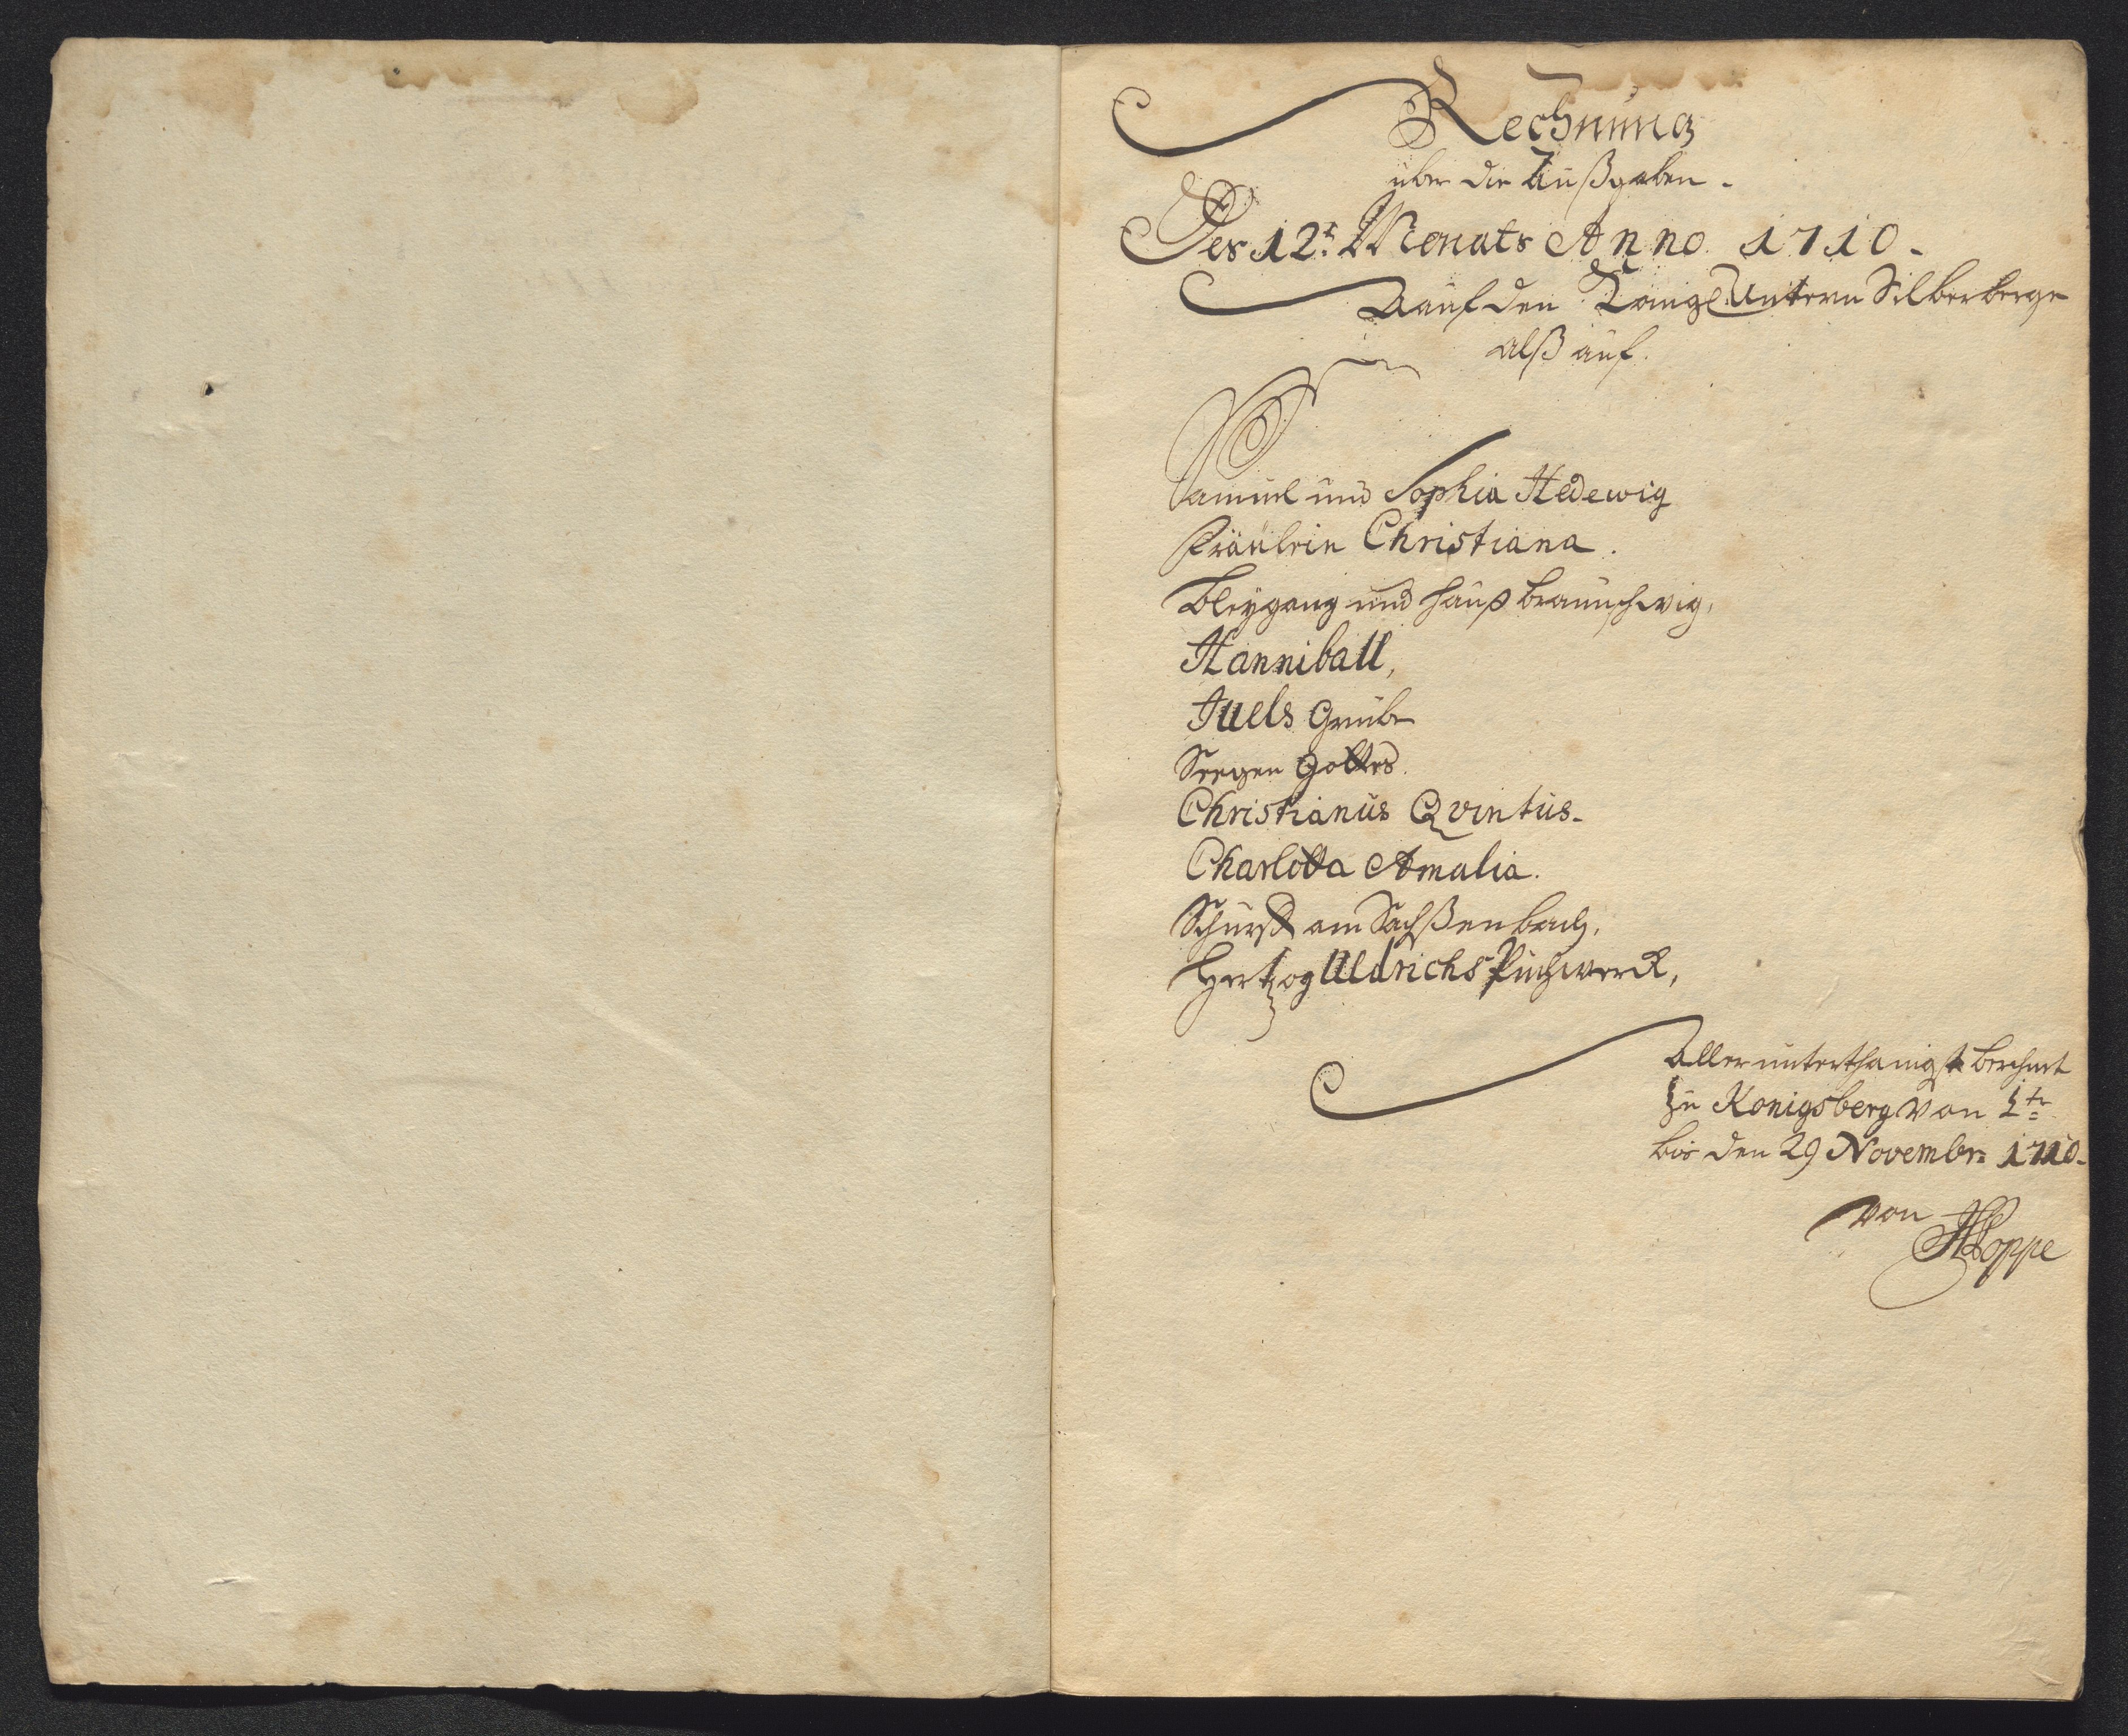 Rechnung
über die Außgaben.
Des 12t. Monats Anno 1710.
Auf den Königl: Untern Silberberge
alß auf.
Samuel und Sophia Hedewig
Fräulein Christiana.
Bleygang und Hauß Braunschwig,
Hanniball,
Juels Grube
Seegen Gottes.
Christianus Qvintus.
Charlotta Amalia.
Schurff am Sachßenbach,
Hertzog Uldrichs Puchwerck,
Allerunterthänigst berechnet
zu Konigsberg von 1ten
bis den 29 Novembr: 1710.
von
Hoppe